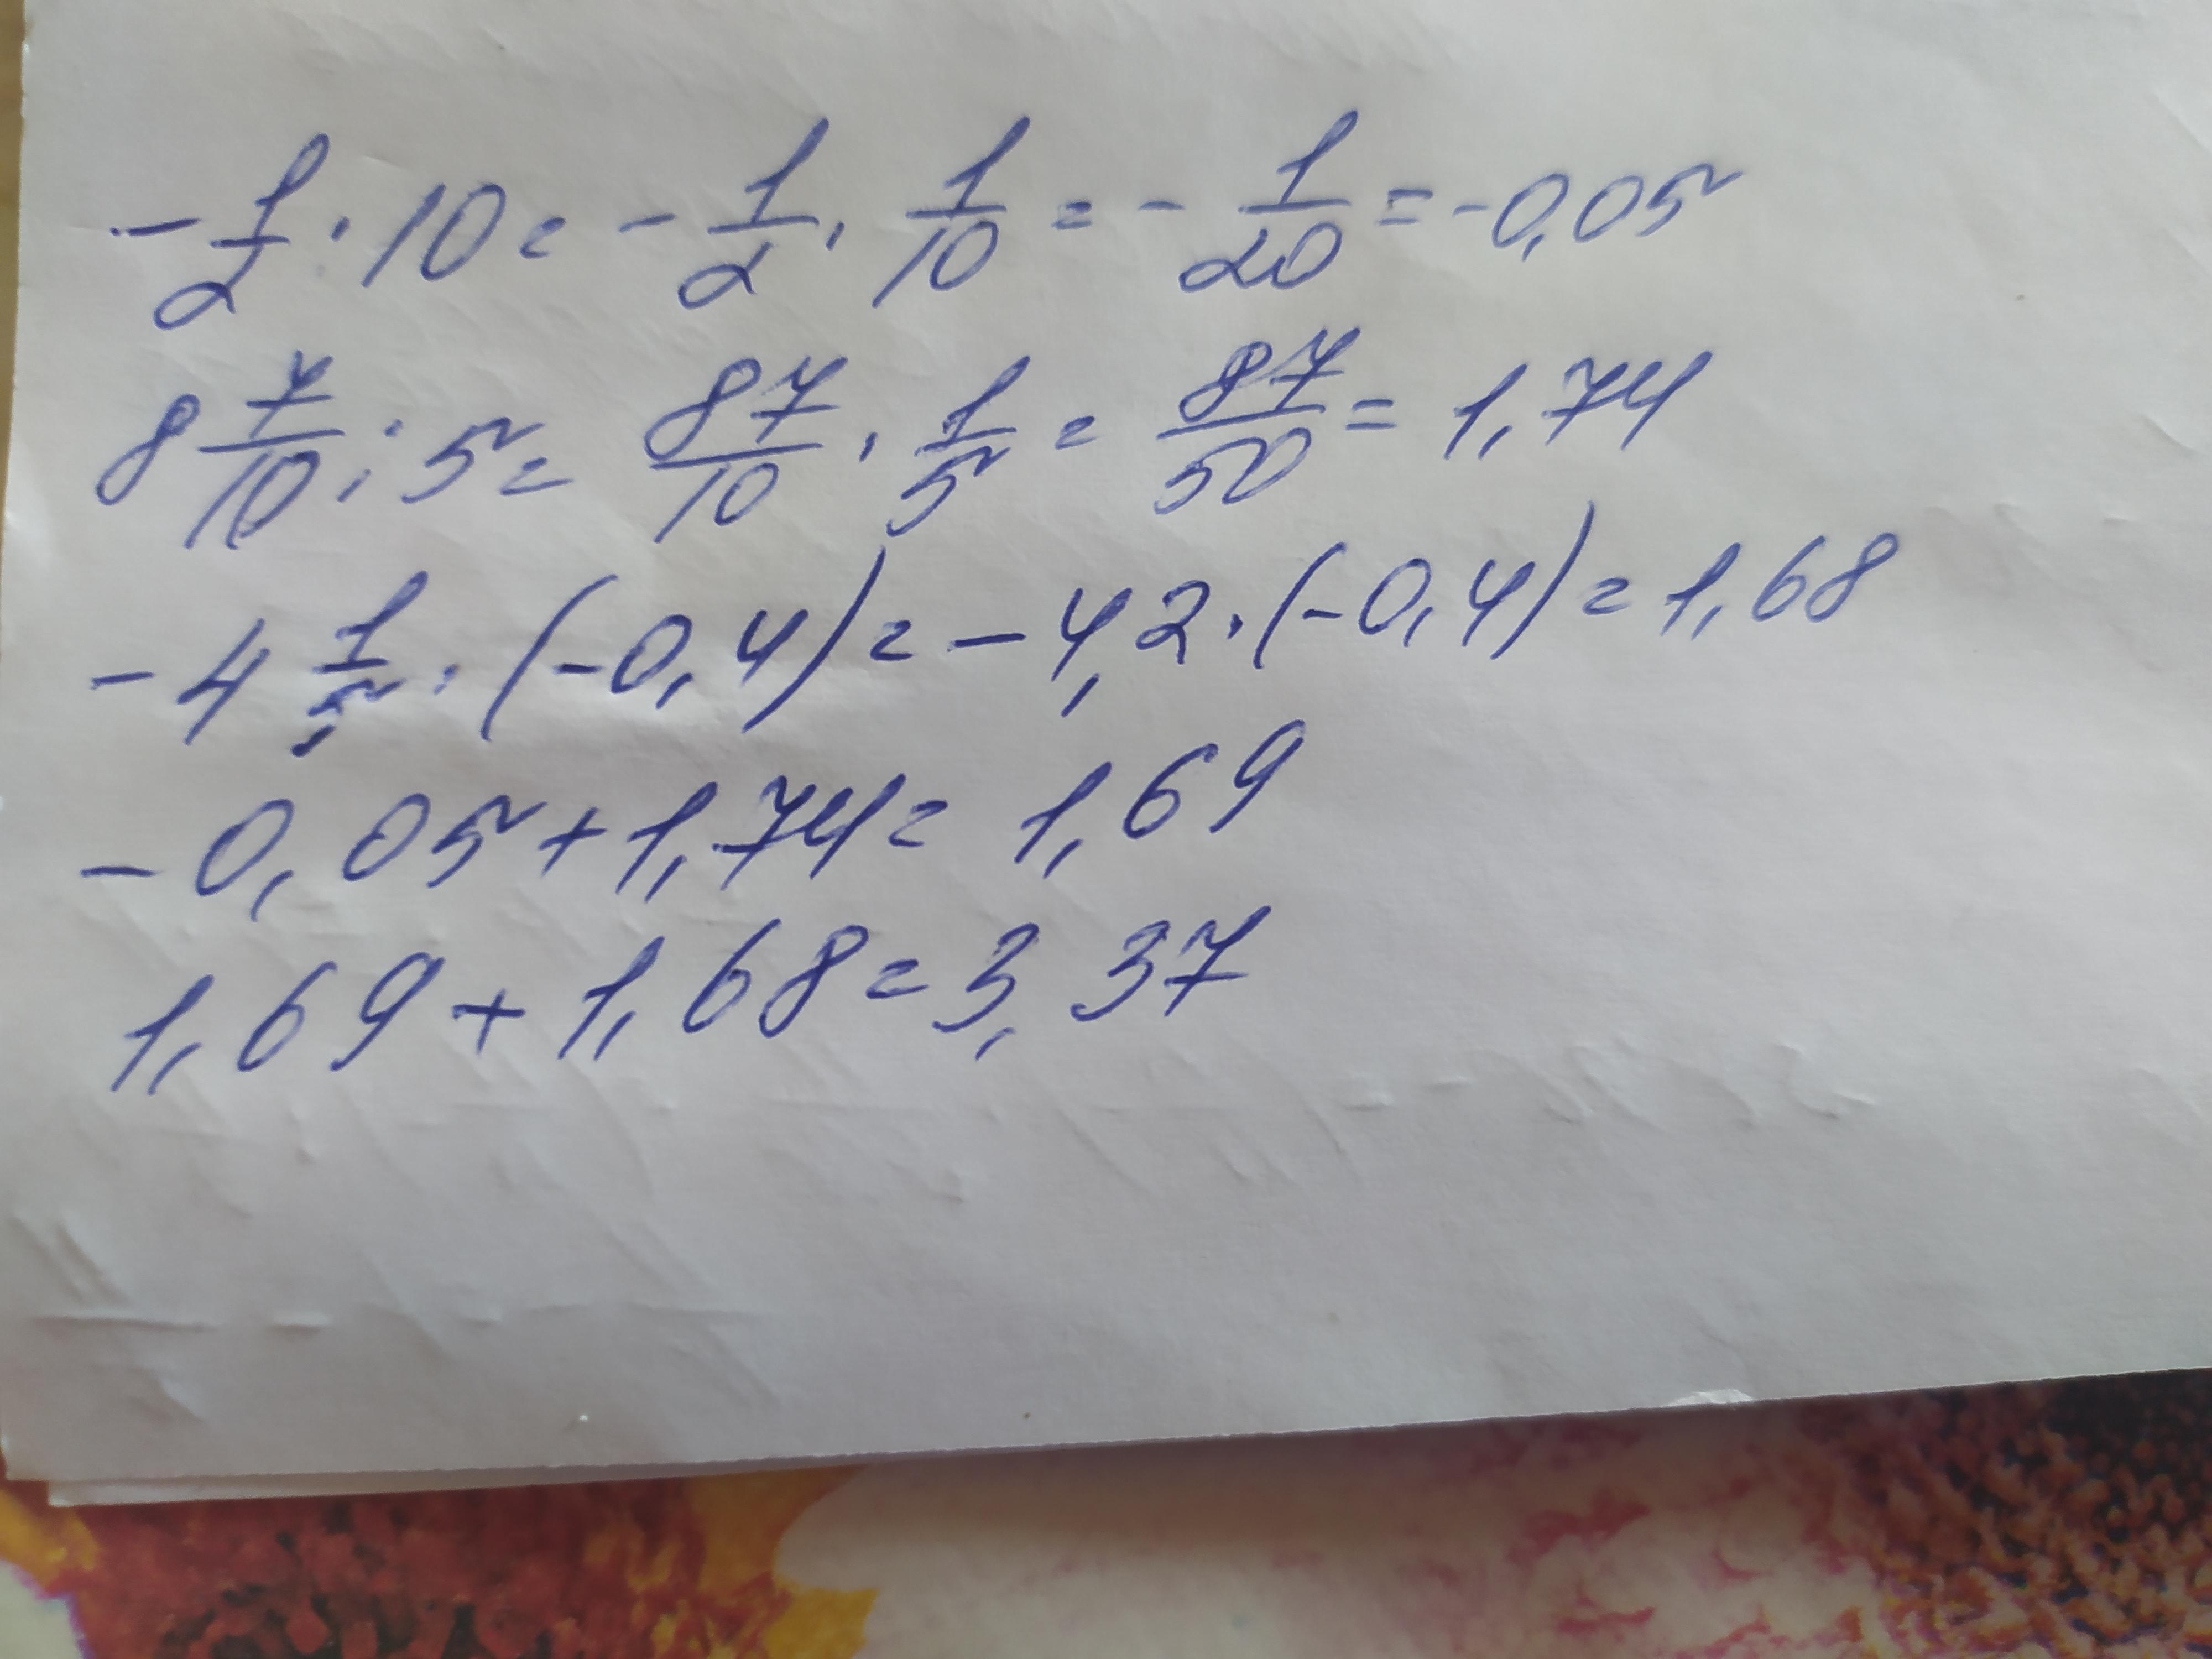 -1/2 · 10 = -1/2 · 1/10 = -1/20 = -0,05
8 7/10 : 5 = 87/10 · 1/5 = 87/50 = 1,74
-4 1/5 · (-0,4) = -4,2 · (-0,4) = 1,68
-0,05 + 1,74 = 1,69
1,69 + 1,68 = 3,37